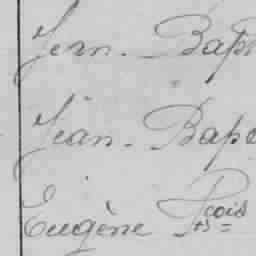 Jean-Bap
Jean-Bap
Eugène Fçois